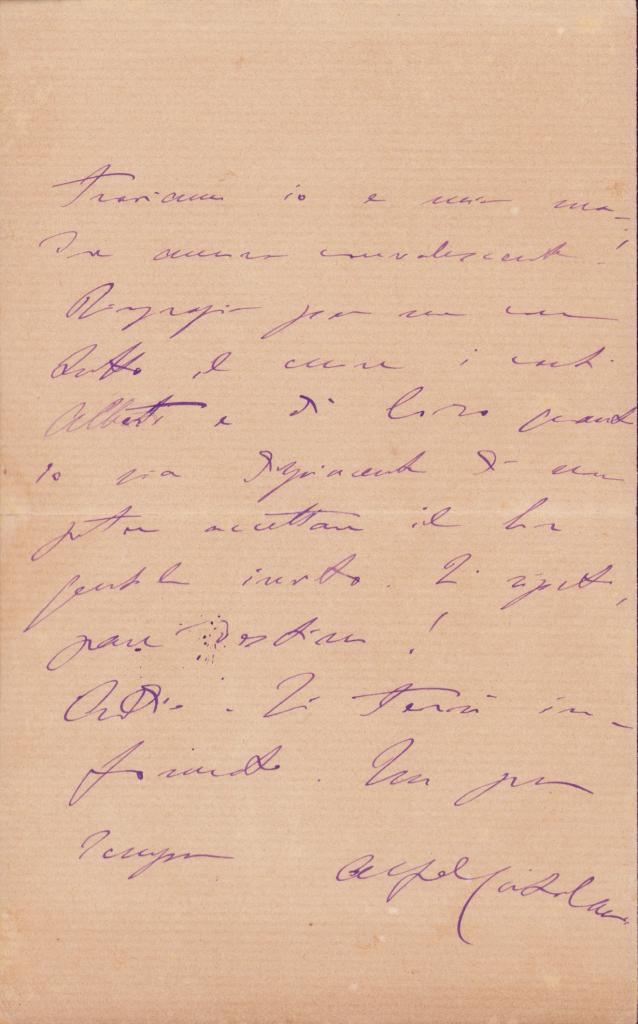 Troviamo io e mia ma-
dre ancora convalescenti!
Ringrazia per me con
tutto il cuore i conti
Alberti e dì loro quanto
io sia dispiacente di non
poter accettare il loro
gentile invito. Ti ripeto,
pare destino!
Addio. Ti terrò in-
formato. Un po'
Tempo
Alf Catalani